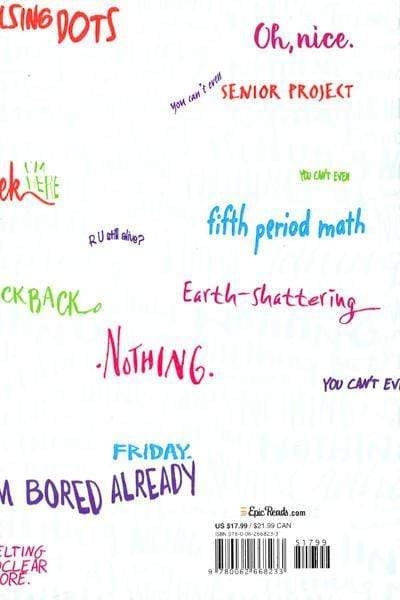 LSING DOTS
Oh, nice.
you can't even
SENIOR PROJECT
I'M
HERE
YOU CAN'T EVEN
fifth period math
R U still alive?
CKBACK.
Earth-shattering
NOTHING.
YOU CAN'T EV
FRIDAY.
M BORED ALREADY
EpicReads.com
US $17.99 / $21.99 CAN
ISBN 978-0-06-266823-3
51799
9 780062 668233
ELTING
CLEAR
ORE.